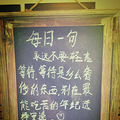 每日一句
永远不要轻言
等待,等待是多么奢
侈的东西,别在最
能吃苦的年纪选
择安逸